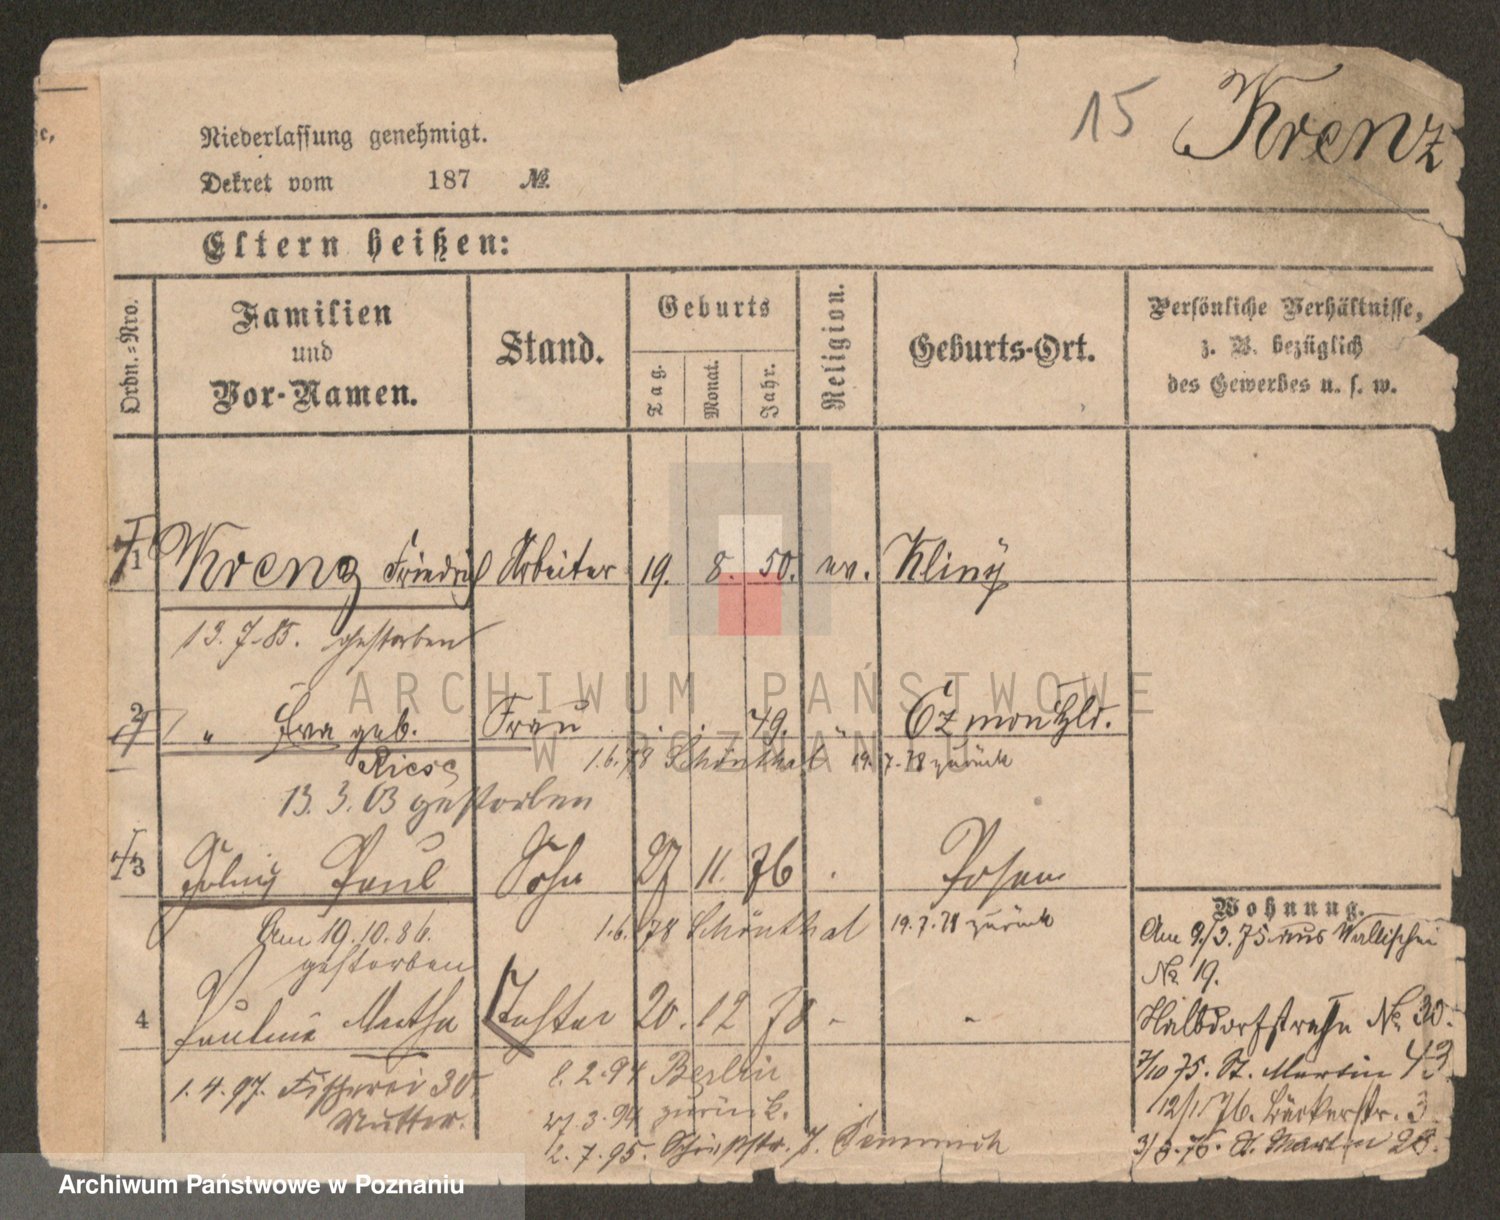 15 Krenz
Niederlassung genehmigt.
Dekret vom 187 No.
Eltern heißen:
Ordn.-Nro.
Familien
und
Vor-Namen.
Stand.
Geburts
Tag.
Monat.
Jahr.
Religion.
Geburts-Ort.
Persönliche Verhältnisse,
z. B. bezüglich
des Gewerbes u. s. w.
1 Krenz Friedrich Arbeiter 19. 8. 50. ev.
13. 7. 85. gestorben
2 " Eva geb. Frau . . 49. "
Riese 1.6.78 Schönthal 19.7.78 zurück
13. 3. 03 gestorben
3 Paul Sohn 27 11. 76 . Posen
Am 19.10.86. 1.6.78 Schönthal 19.7.78 zurück
gestorben
4 Pauline Martha Tochter 20. 12 78 - -
1.4.97. Fischerei 30. 8.2.94 Berlin
Mutter. 27.3.94 zurück.
2.7.95.
Wohnung.
Am 9/3.75 aus Wallischei
No 19.
Halbdorfstraße No 30.
7/10 75. St. Martin 43
12/1 76. Bäckerstr. 3
St. Martin 28.
ARCHIWUM PAŃSTWOWE
W POZNANIU
Archiwum Państwowe w Poznaniu